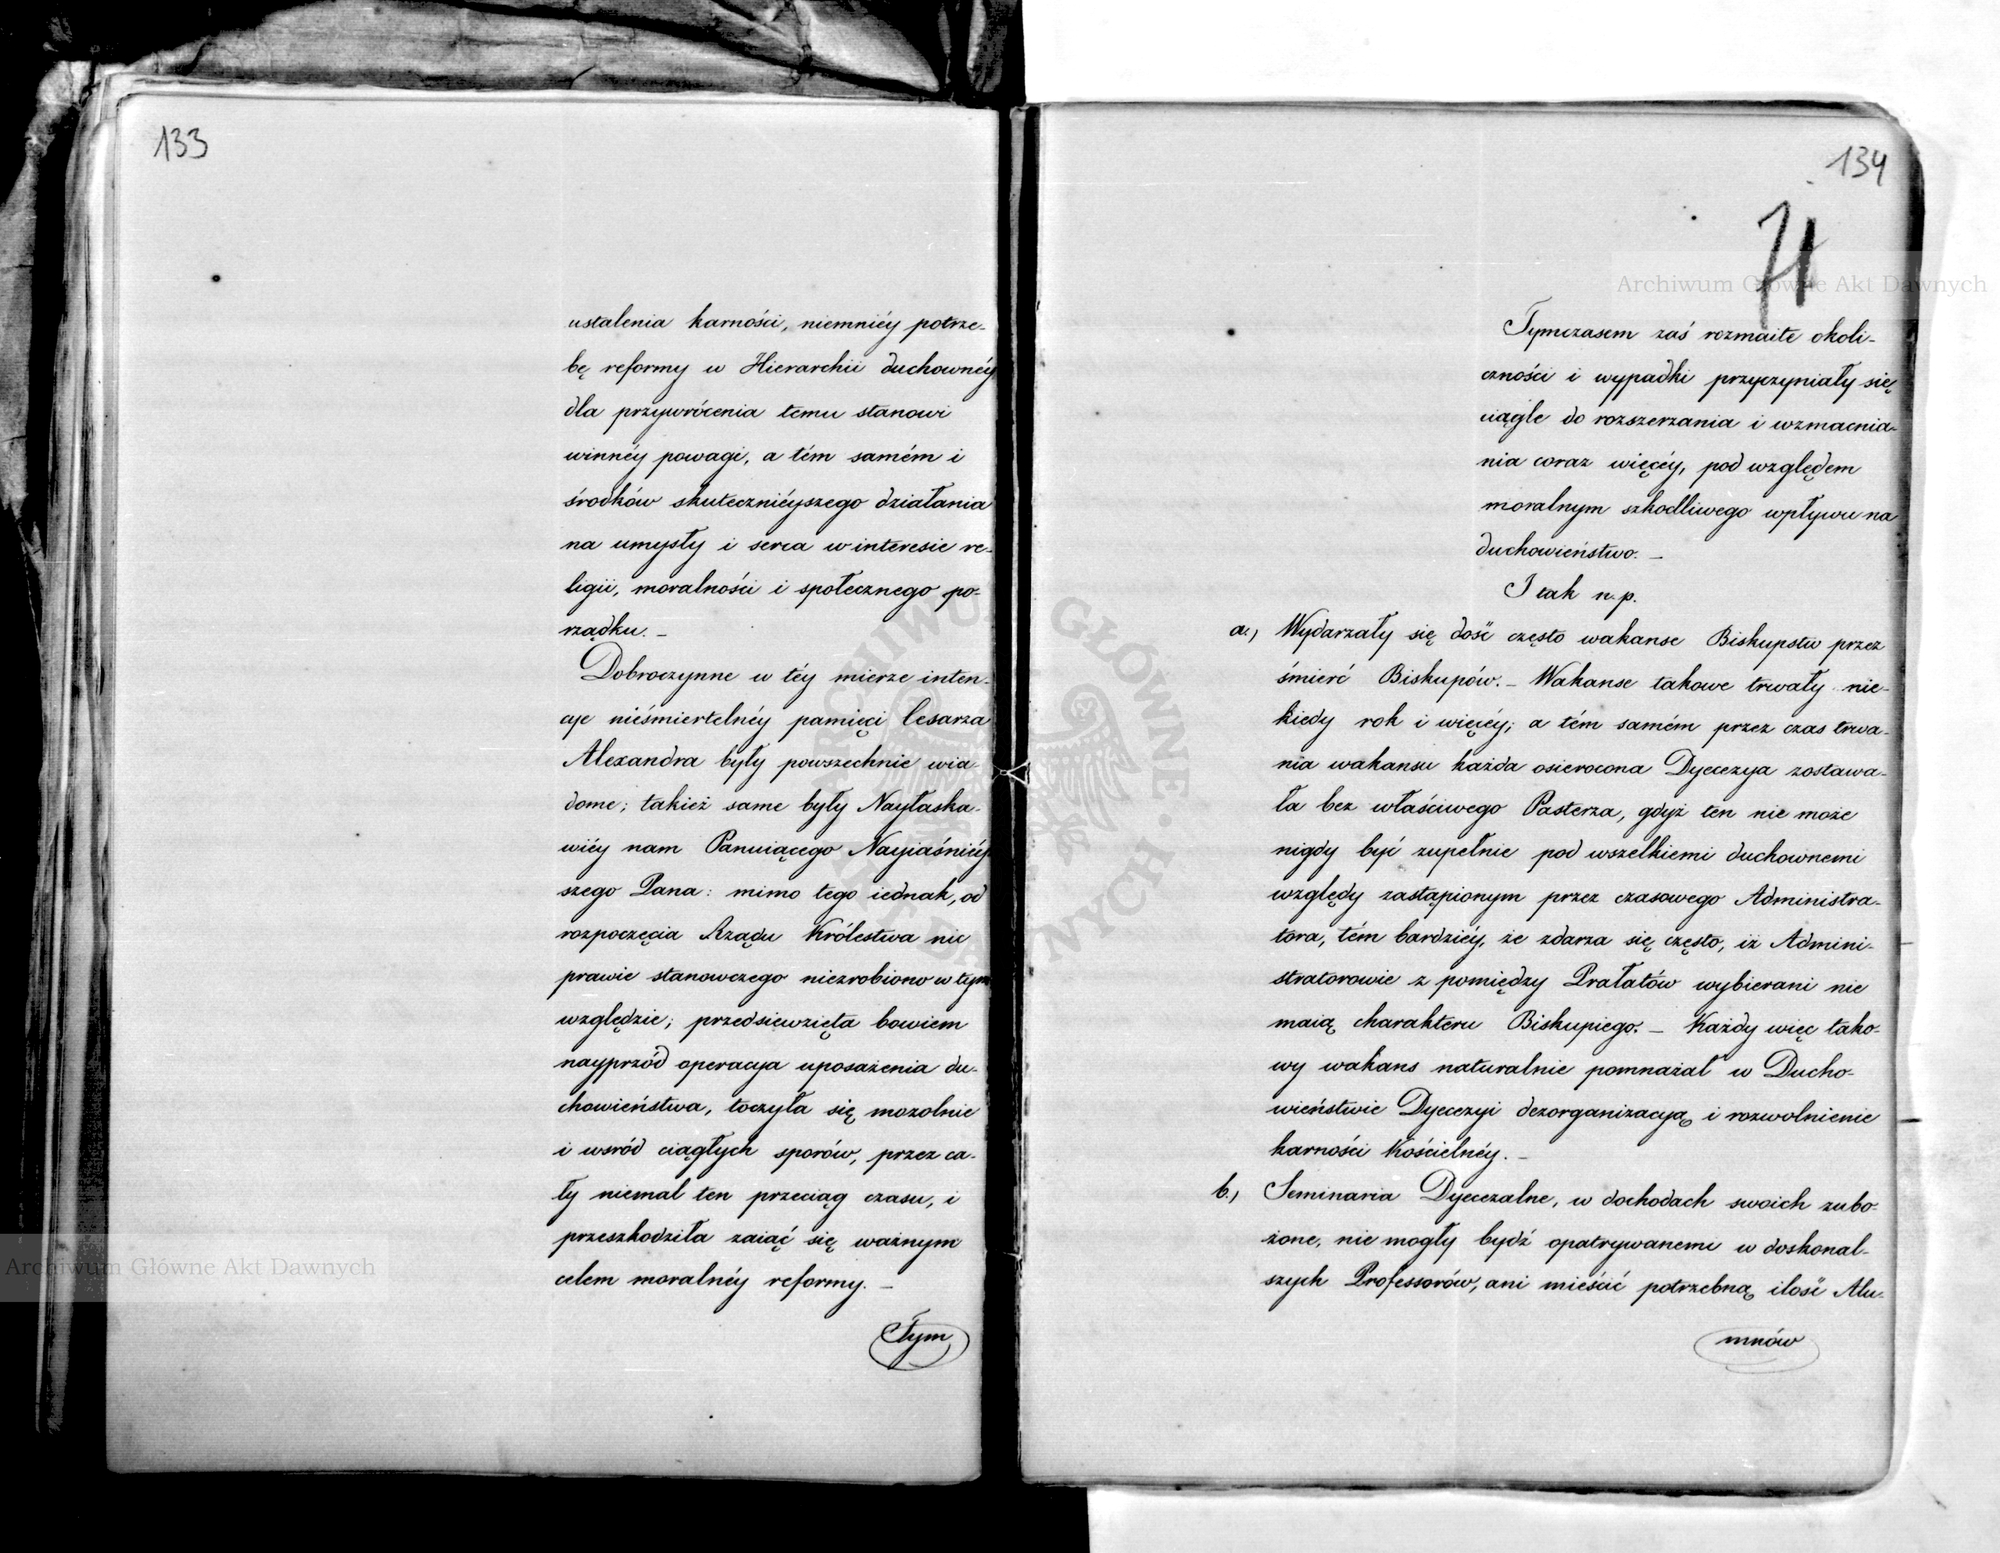 133
ustalenia karności, niemniéy potrze-
bę reformy w Hierarchii duchownéy
dla przywrócenia temu stanowi
winnéy powagi, a tém samém i
środków skutecznieyszego działania
na umysły i serca w interesie re-
ligii, moralności i społecznego po-
rządku. _
Dobroczynne w téy mierze inten-
cye nieśmiertelnéy pamięci Cesarza
Alexandra były powszechnie wia
dome; takież same były Nayłaska-
wiéy nam Panuiącego Nayiaśniéy
szego Pana: mimo tego iednak, od
rozpoczęcia Rządu Królestwa nic
prawie stanowczego niezrobiono w tym
względzie; przedsiewzięta bowiem
nayprzód operacya uposażenia du-
chowieństwa, toczyła się mozolnie
i wsród ciągłych sporów, przez ca-
ły niemal ten przeciąg czasu, i
przeszkodziła zaiąć się ważnym
celem moralnéy reformy. _
Tym
134
71
Tymczasem zaś rozmaite okoli-
czności i wypadki przyczyniały się
ciągle do rozszerzania i wzmacnia-
nia coraz więcéy, pod względem
moralnym szkodliwego wpływu na
duchowieństwo. _
I tak n.p.
a., Wydarzały się dość często wakanse Biskupstw przez
śmierć Biskupów. _ Wakanse takowe trwały nie-
kiedy rok i więcéy; a tém samém przez czas trwa-
nia wakansu każda osierocona Dyecezya zostawa-
ła bez właściwego Pasterza, gdyż ten nie może
nigdy być zupełnie pod wszelkiemi duchownemi
względy zastąpionym przez czasowego Administra-
tora, tém bardziéy, że zdarza się często, iż Admini-
stratorowie z pomiędzy Prałatów wybierani nie
maią charakteru Biskupiego. _ Każdy więc tako-
wy wakans naturalnie pomnażał w Ducho-
wieństwie Dyecezyi dezorganizacyą i rozwolnienie
karności Kościelnéy. _
b., Seminaria Dyecezalne, w dochodach swoich zubo-
żone, nie mogły bydź opatrywanemi w doskonal-
szych Professorów, ani mieścić potrzebną ilość Alu-
mnów
Archiwum Główne Akt Dawnych
Archiwum Główne Akt Dawnych
ARCHIWUM GŁÓWNE AKT DAWNYCH